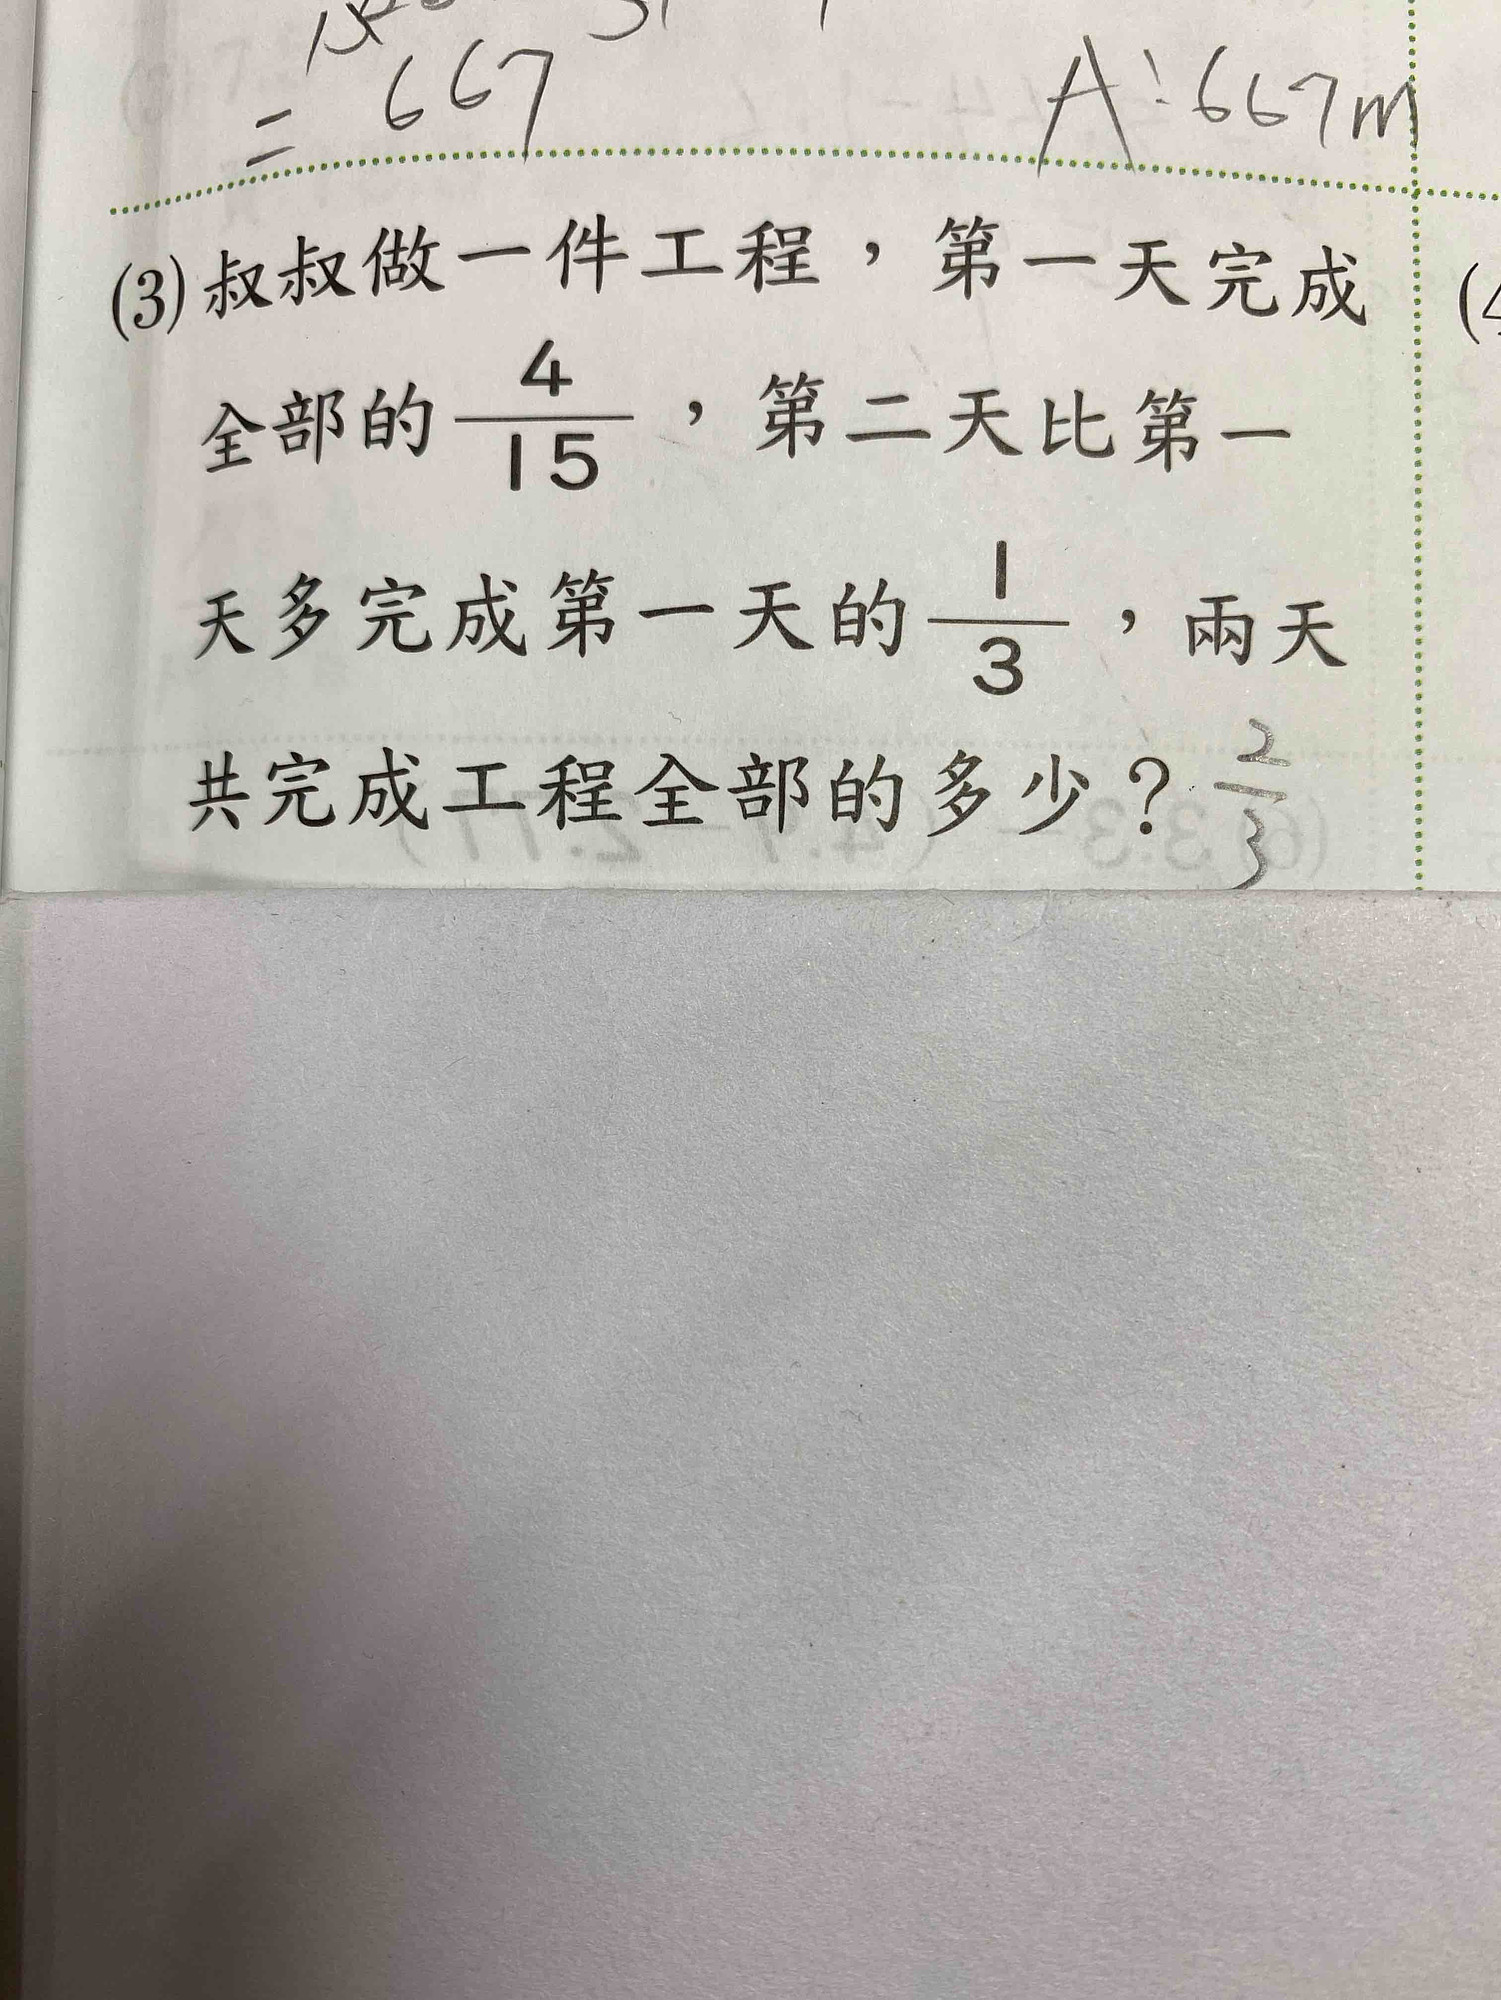 = 667 A:667m
(3)叔叔做一件工程，第一天完成
全部的4/15，第二天比第一
天多完成第一天的1/3，兩天
共完成工程全部的多少？2/3